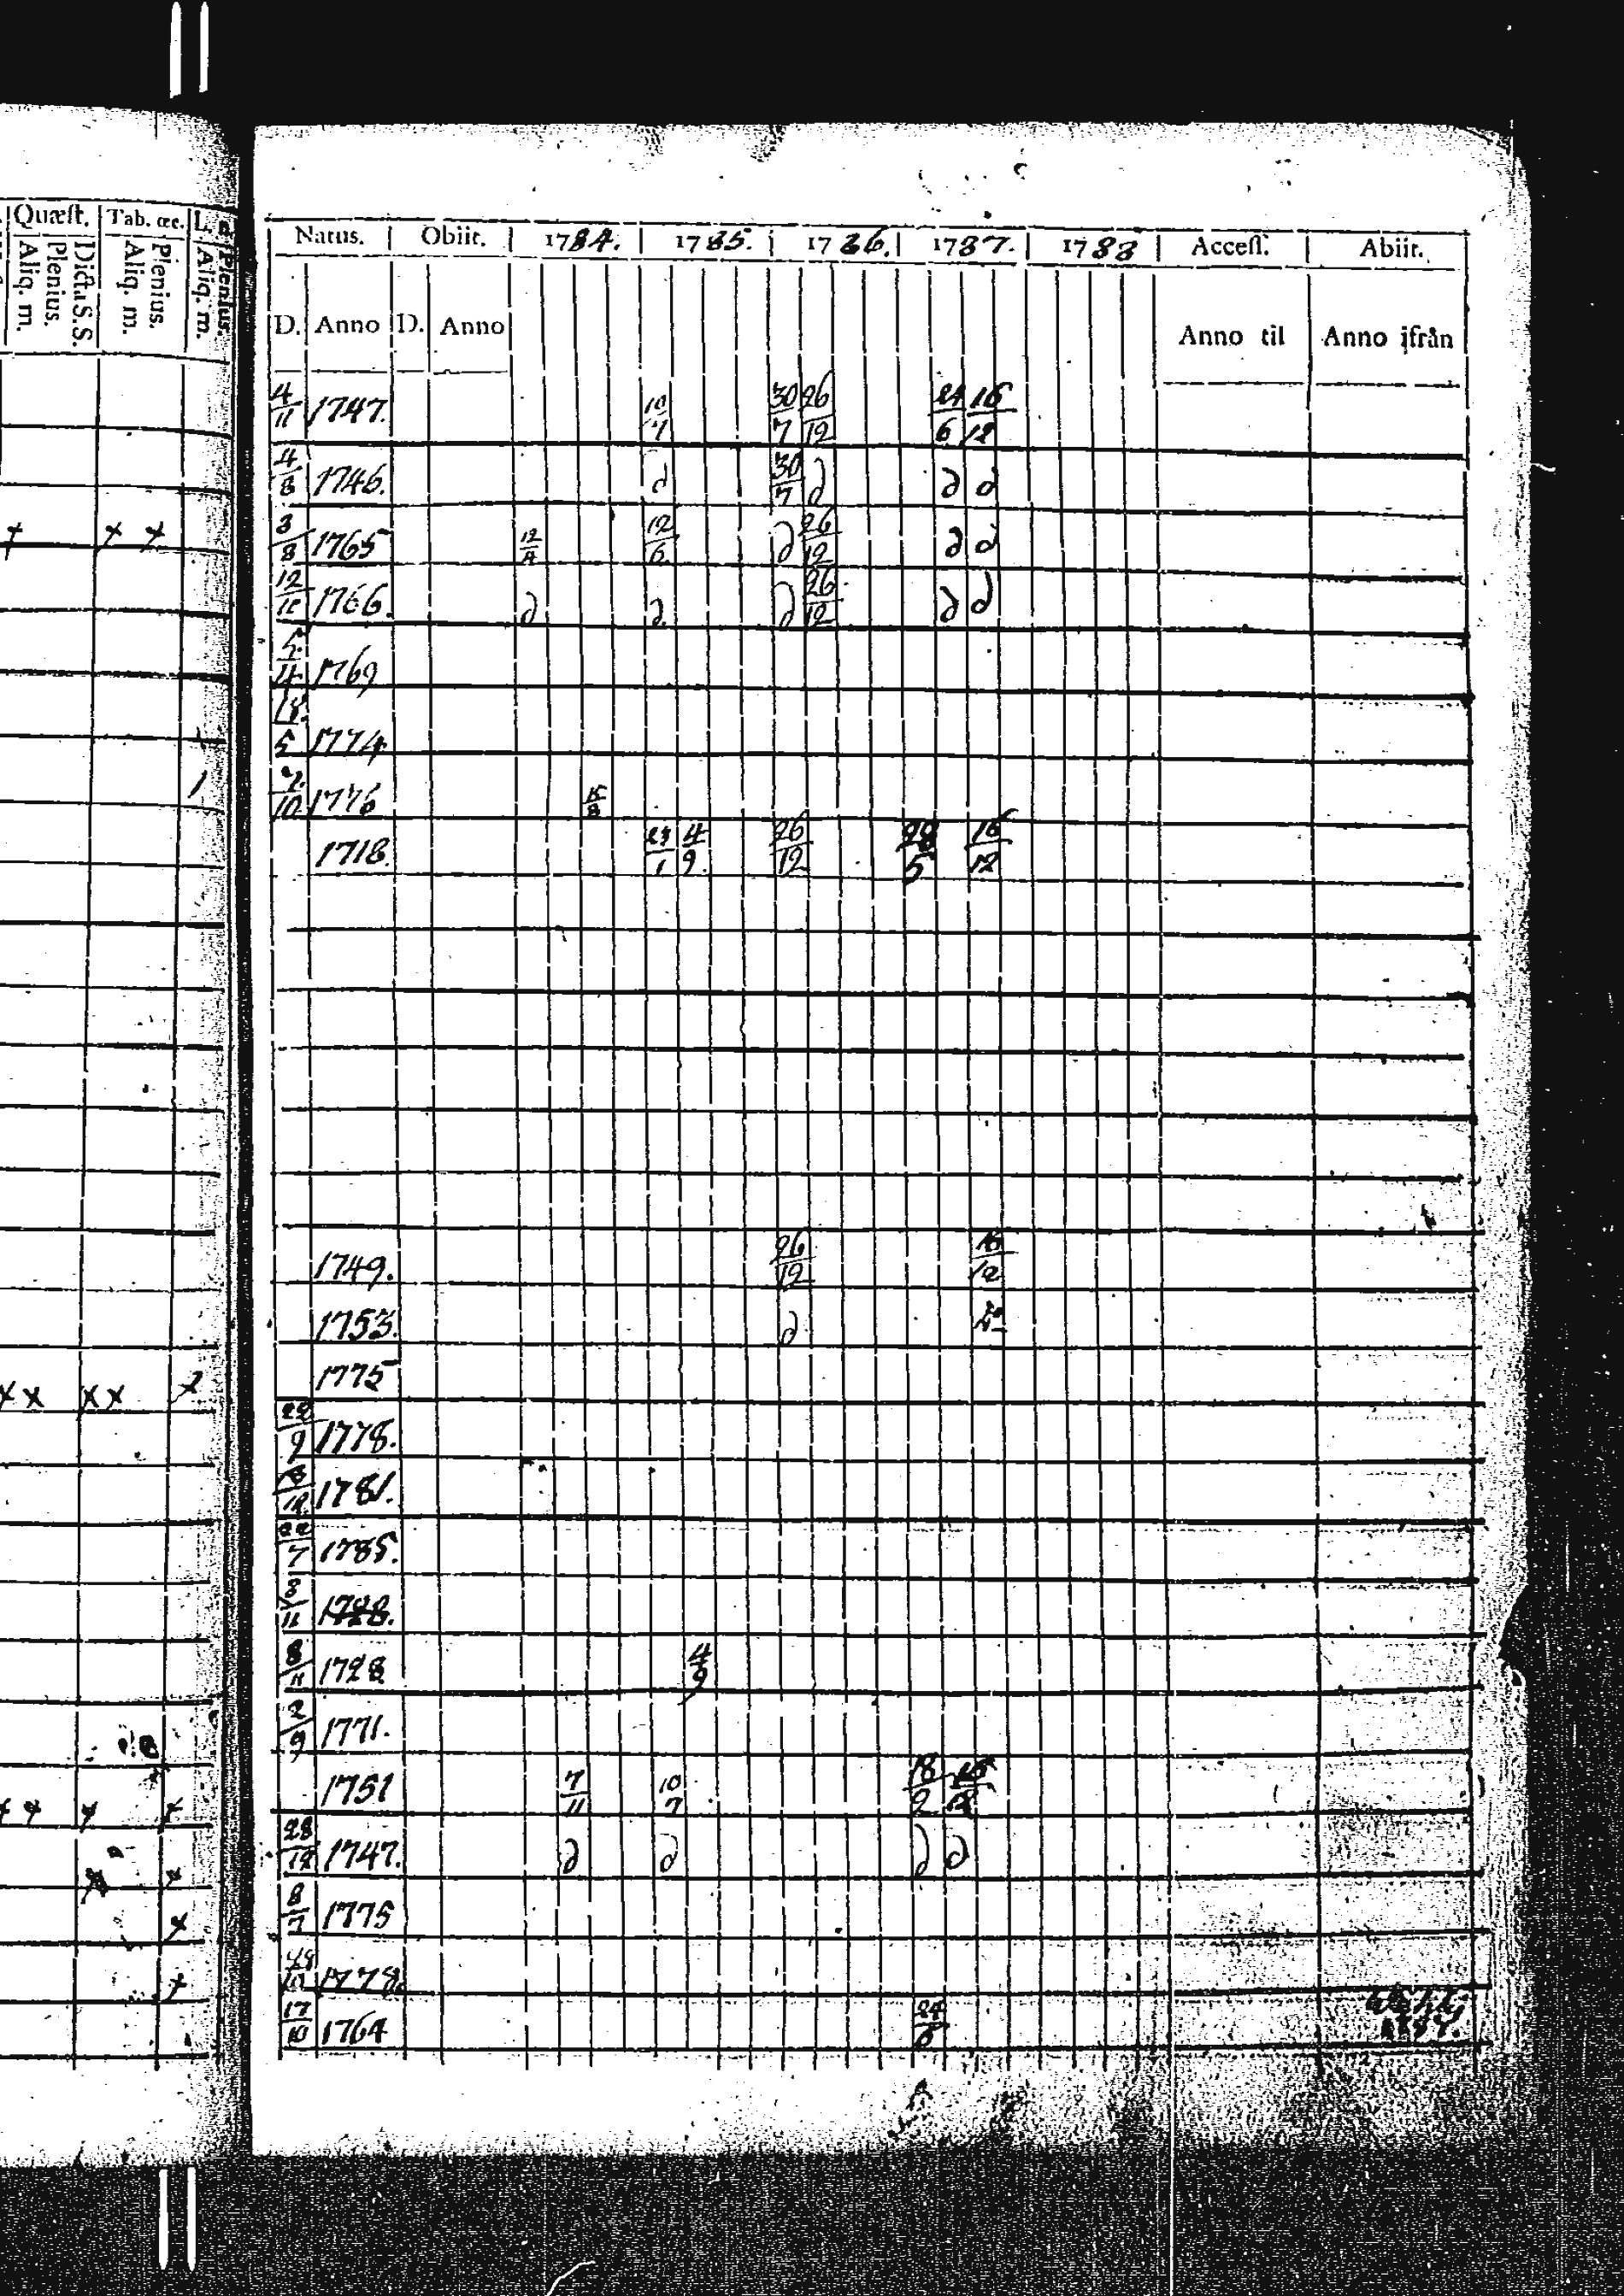 Quæst. Tab. œc. L. n.
Aliq. m. Plenius. Dicta S.S. Aliq. m. Plenius. Aliq. m. Plenius.
Natus. Obiit. 1784. 1785. 1786. 1787. 1788 Access. Abiit.
D. Anno D. Anno Anno til Anno ifrån
4/11 1747. 10/7 30/7 26/12 24/6 16/12
4/8 1746. d 30/7 d d d
3/8 1765 12/4 12/6 d 26/12 d d
12/12 1766. d d d 26/12 d d
5/4 1769
18/5 1774
7/10 1776 15/8
1718. 23/1 4/9 26/12 28/5 16/12
1749. 26/12 16/12
1753. d
x x x x x 1775
29/9 1778.
1781.
22/7 1785.
3/11 1788.
8/11 1728 4/9
2/9 1771.
x x x x 1751 7/11 10/7 18/2
28/12 1747. d d d d
8/7 1775
1778.
17/10 1764 24/6